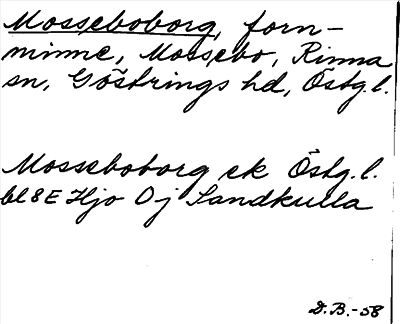 Mosseboborg, forn-
minne, Mossebo, Rinna
sn, Göstrings hd, Östg.l.
Mosseboborg ek Östg.l.
bl 8E Hjo 0j Sandkulla
D.B.-58